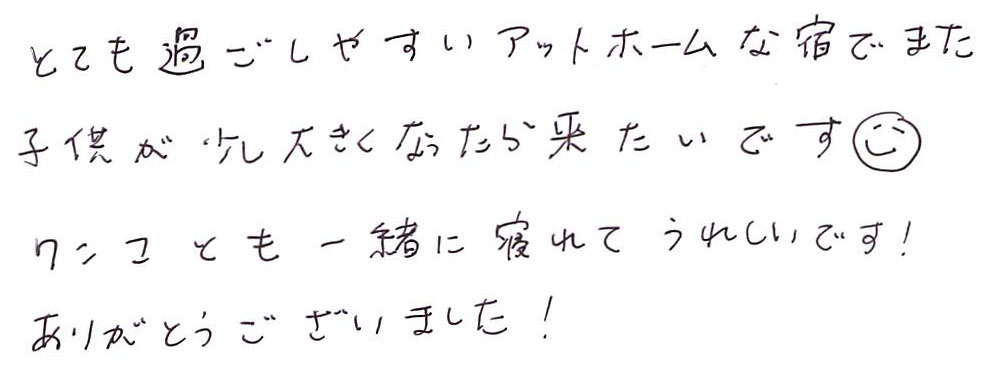 とても過ごしやすいアットホームな宿でまた
子供が少し大きくなったら来たいです☺
ワンコとも一緒に寝れてうれしいです!
ありがとうございました!